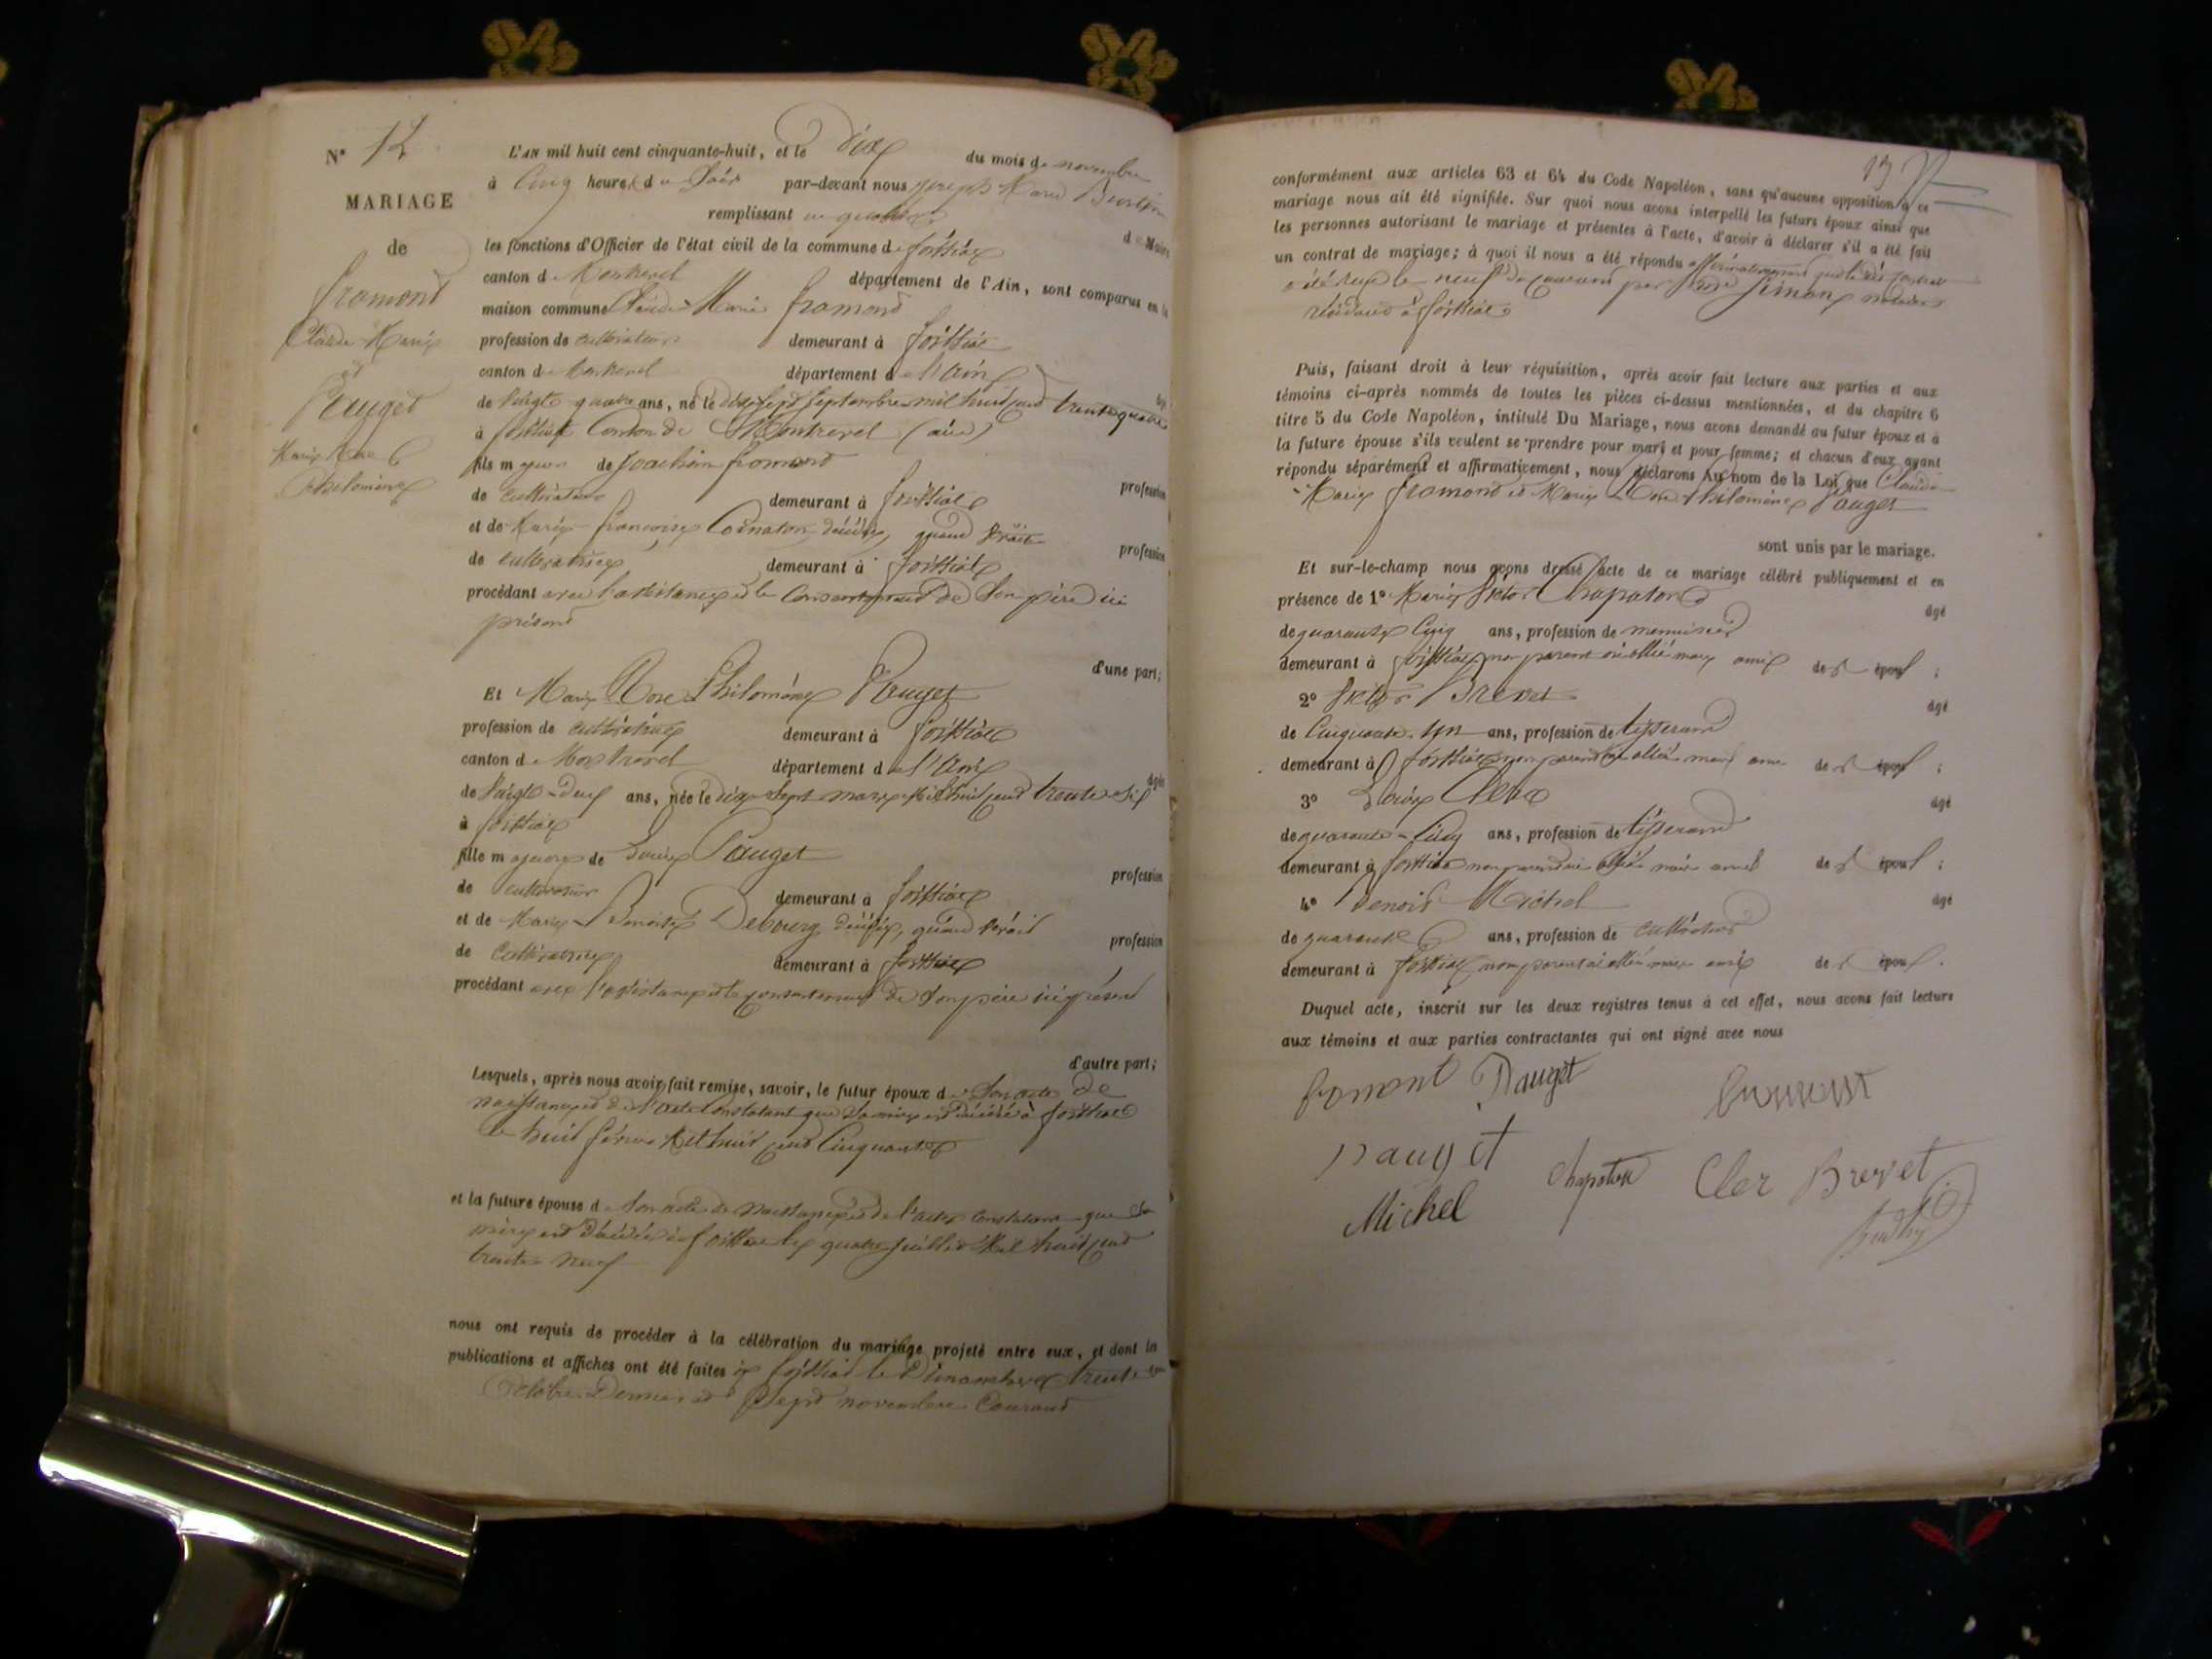 N° 12
MARIAGE
de
Fromont
Claude Marie
et
Pauget
Marie Rose
Philomène
L'AN mil huit cent cinquante-huit, et le Dix du mois de novembre
à Cinq heures du Soir par-devant nous Joseph Marie
remplissant en qualité de Maire
les fonctions d'Officier de l'état civil de la commune de foissiat
canton de Montrevel département de l'Ain, sont comparus en la
maison commune Claude Marie fromont
profession de cultivateur demeurant à foissiat
canton de Montrevel département de l'Ain âgé
de Vingt quatre ans, né le dix sept Septembre mil huit cent trente quatre
à foissiat Canton de Montrevel (ain)
fils majeur de Joachim fromont profession
de cultivateur demeurant à foissiat
et de Marie françoise Cornaton décédée, quand vivait profession
de cultivatrice demeurant à foissiat
procédant avec l'assistance et le Consentement de Son père ici
présent
d'une part;
Et Marie Rose Philomène Pauget
profession de cultivatrice demeurant à foissiat
canton de Montrevel département de l'Ain âgée
de Vingt-deux ans, née le dix Sept mars mil huit cent trente Six
à foissiat
fille majeure de Louis Pauget profession
de cultivateur demeurant à foissiat
et de Marie Benoite Debourg décédée, quand vivait profession
de Cultivatrice demeurant à foissiat
procédant avec l'assistance et le consentement de Son père ici présent
d'autre part;
Lesquels, après nous avoir fait remise, savoir, le futur époux de Son acte de
naissance et de l'acte Constatant que Sa mère est décédée à foissiat
le huit février Mil huit cent Cinquante
et la future épouse de Son acte de Naissance et de l'acte Constatant que Sa
mère est décédée à foissiat le quatre Juillet Mil huit cent
trente neuf
nous ont requis de procéder à la célébration du mariage projeté entre eux, et dont les
publications et affiches ont été faites à foissiat le Dimanche trente un
Octobre Dernier et Sept novembre Courant
conformément aux articles 63 et 64 du Code Napoléon, sans qu'aucune opposition à ce
mariage nous ait été signifiée. Sur quoi nous avons interpellé les futurs époux ainsi que
les personnes autorisant le mariage et présentes à l'acte, d'avoir à déclarer s'il a été fait
un contrat de mariage; à quoi il nous a été répondu affirmativement que le dit contrat
a été reçu le neuf du courant par notaire
résidant à foissiat
Puis, faisant droit à leur réquisition, après avoir fait lecture aux parties et aux
témoins ci-après nommés de toutes les pièces ci-dessus mentionnées, et du chapitre 6
titre 5 du Code Napoléon, intitulé Du Mariage, nous avons demandé au futur époux et à
la future épouse s'ils veulent se prendre pour mari et pour femme; et chacun d'eux ayant
répondu séparément et affirmativement, nous déclarons Au nom de la Loi que Claude
Marie fromont et Marie Rose Philomène Pauget
sont unis par le mariage.
Et sur-le-champ nous avons dressé acte de ce mariage célébré publiquement et en
présence de 1° Marie Victor Chapaton âgé
de quarante Cinq ans, profession de menuisier
demeurant à foissiat non parent ni allié mais ami des époux;
2° Victor Brevet âgé
de Cinquante un ans, profession de tisserand
demeurant à foissiat non parent ni allié mais ami des époux;
3° Louis Clerc âgé
de quarante-Cinq ans, profession de tisserand
demeurant à foissiat non parent ni allié mais ami des époux;
4° Benoit Michel âgé
de quarante ans, profession de cultivateur
demeurant à foissiat non parent ni allié mais ami des époux.
Duquel acte, inscrit sur les deux registres tenus à cet effet, nous avons fait lecture
aux témoins et aux parties contractantes qui ont signé avec nous
fromont Pauget
Pauget Chapaton Cler Brevet
Michel